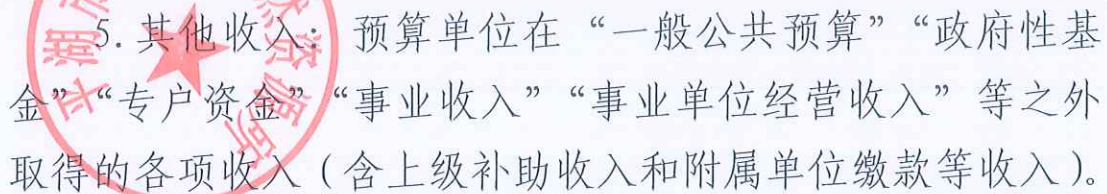 5.其他收入：预算单位在“一般公共预算”“政府性基
金”“专户资金”“事业收入”“事业单位经营收入”等之外
取得的各项收入（含上级补助收入和附属单位缴款等收入）。
平湖市
资源局